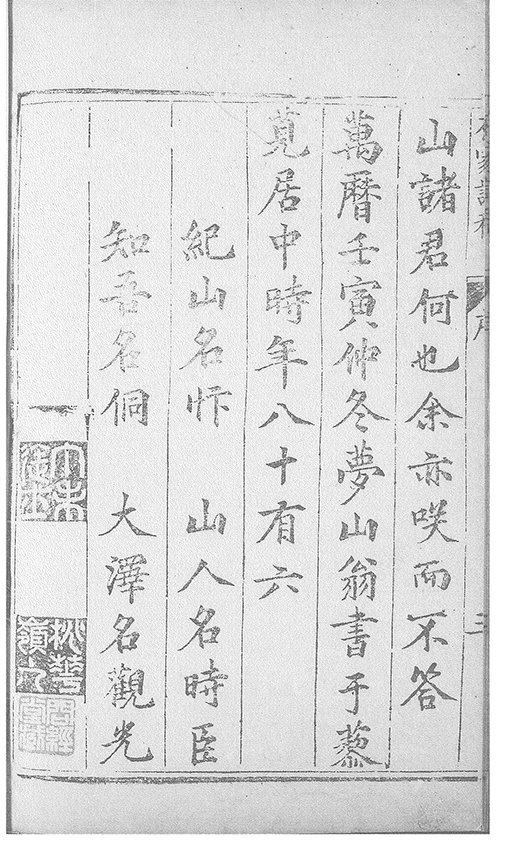 山諸君何也余亦咲而不答
萬曆壬寅仲冬夢山翁書于藜
莧居中時年八十有六
紀山名忭 山人名時臣
知吾名侗 大澤名觀光